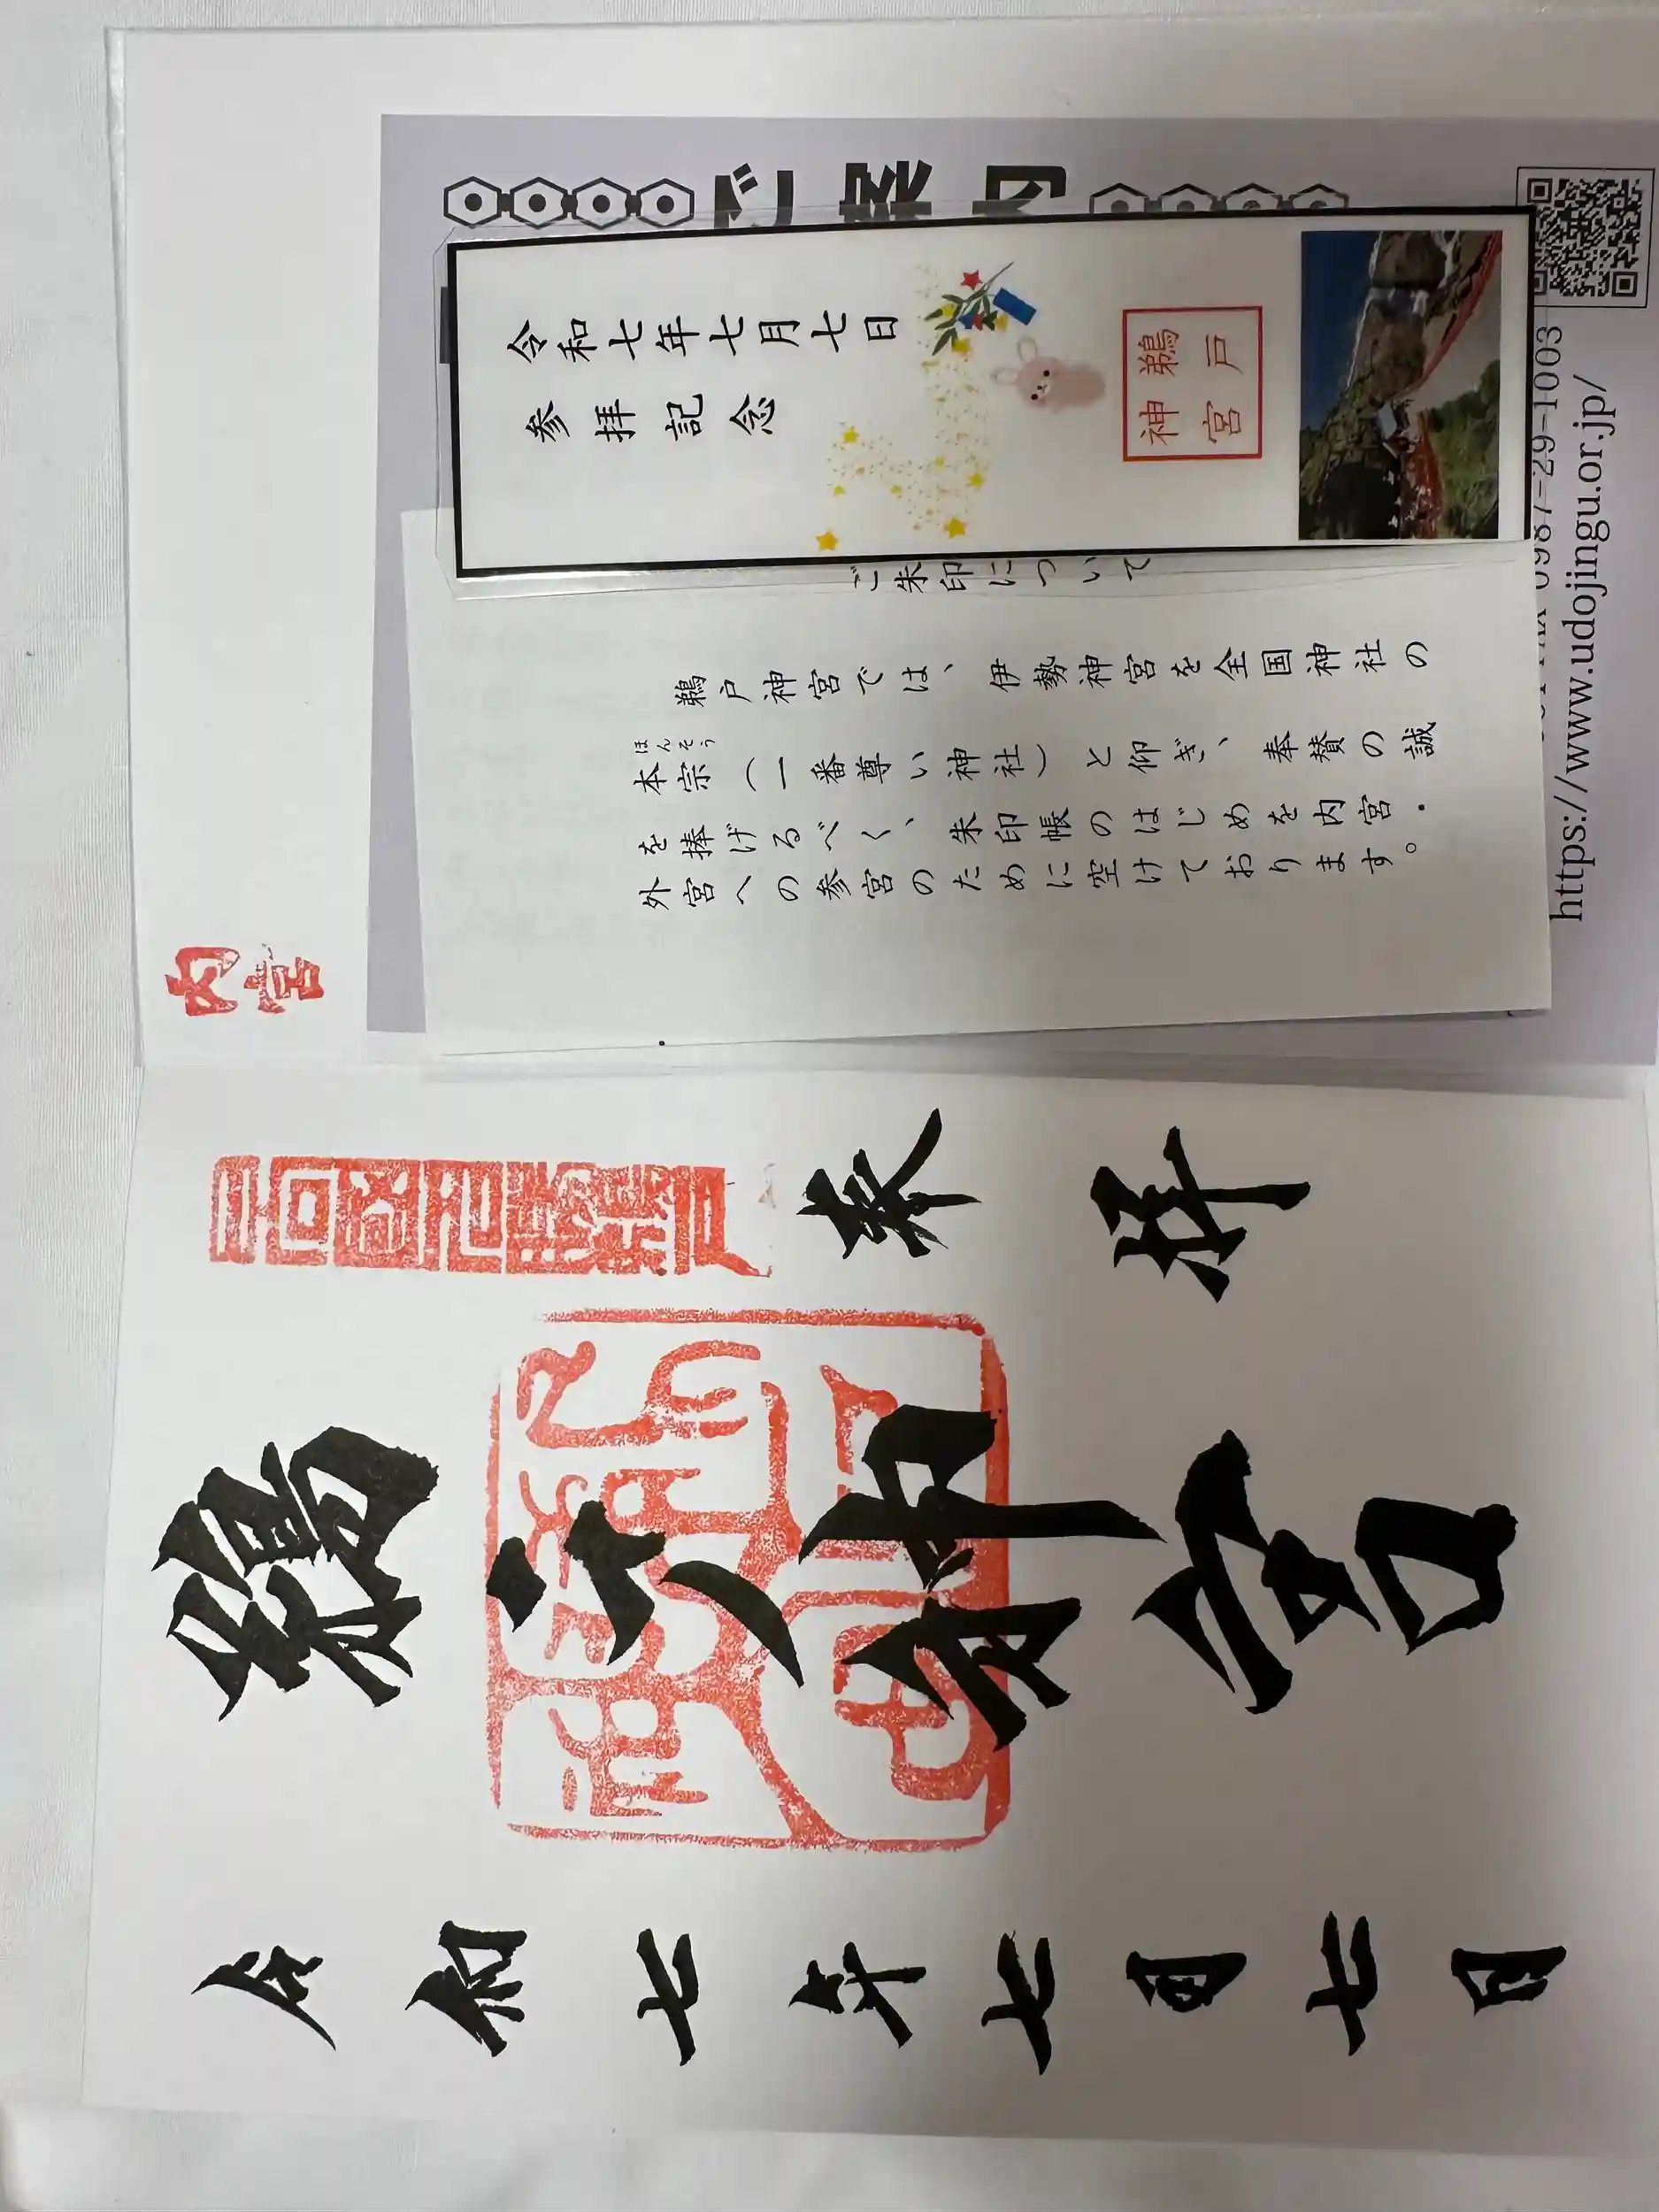 ご案内
0987-29-1003
https://www.udojingu.or.jp/
令和七年七月七日
参拝記念
鵜戸
神宮
ご朱印について
鵜戸神宮では、伊勢神宮を全国神社の
ほんそう
本宗（一番尊い神社）と仰ぎ、奉賛の誠
を捧げるべく、朱印帳のはじめを内宮・
外宮への参宮のために空けております。
内宮
奉拝
鵜戸神宮
令和七年七月七日